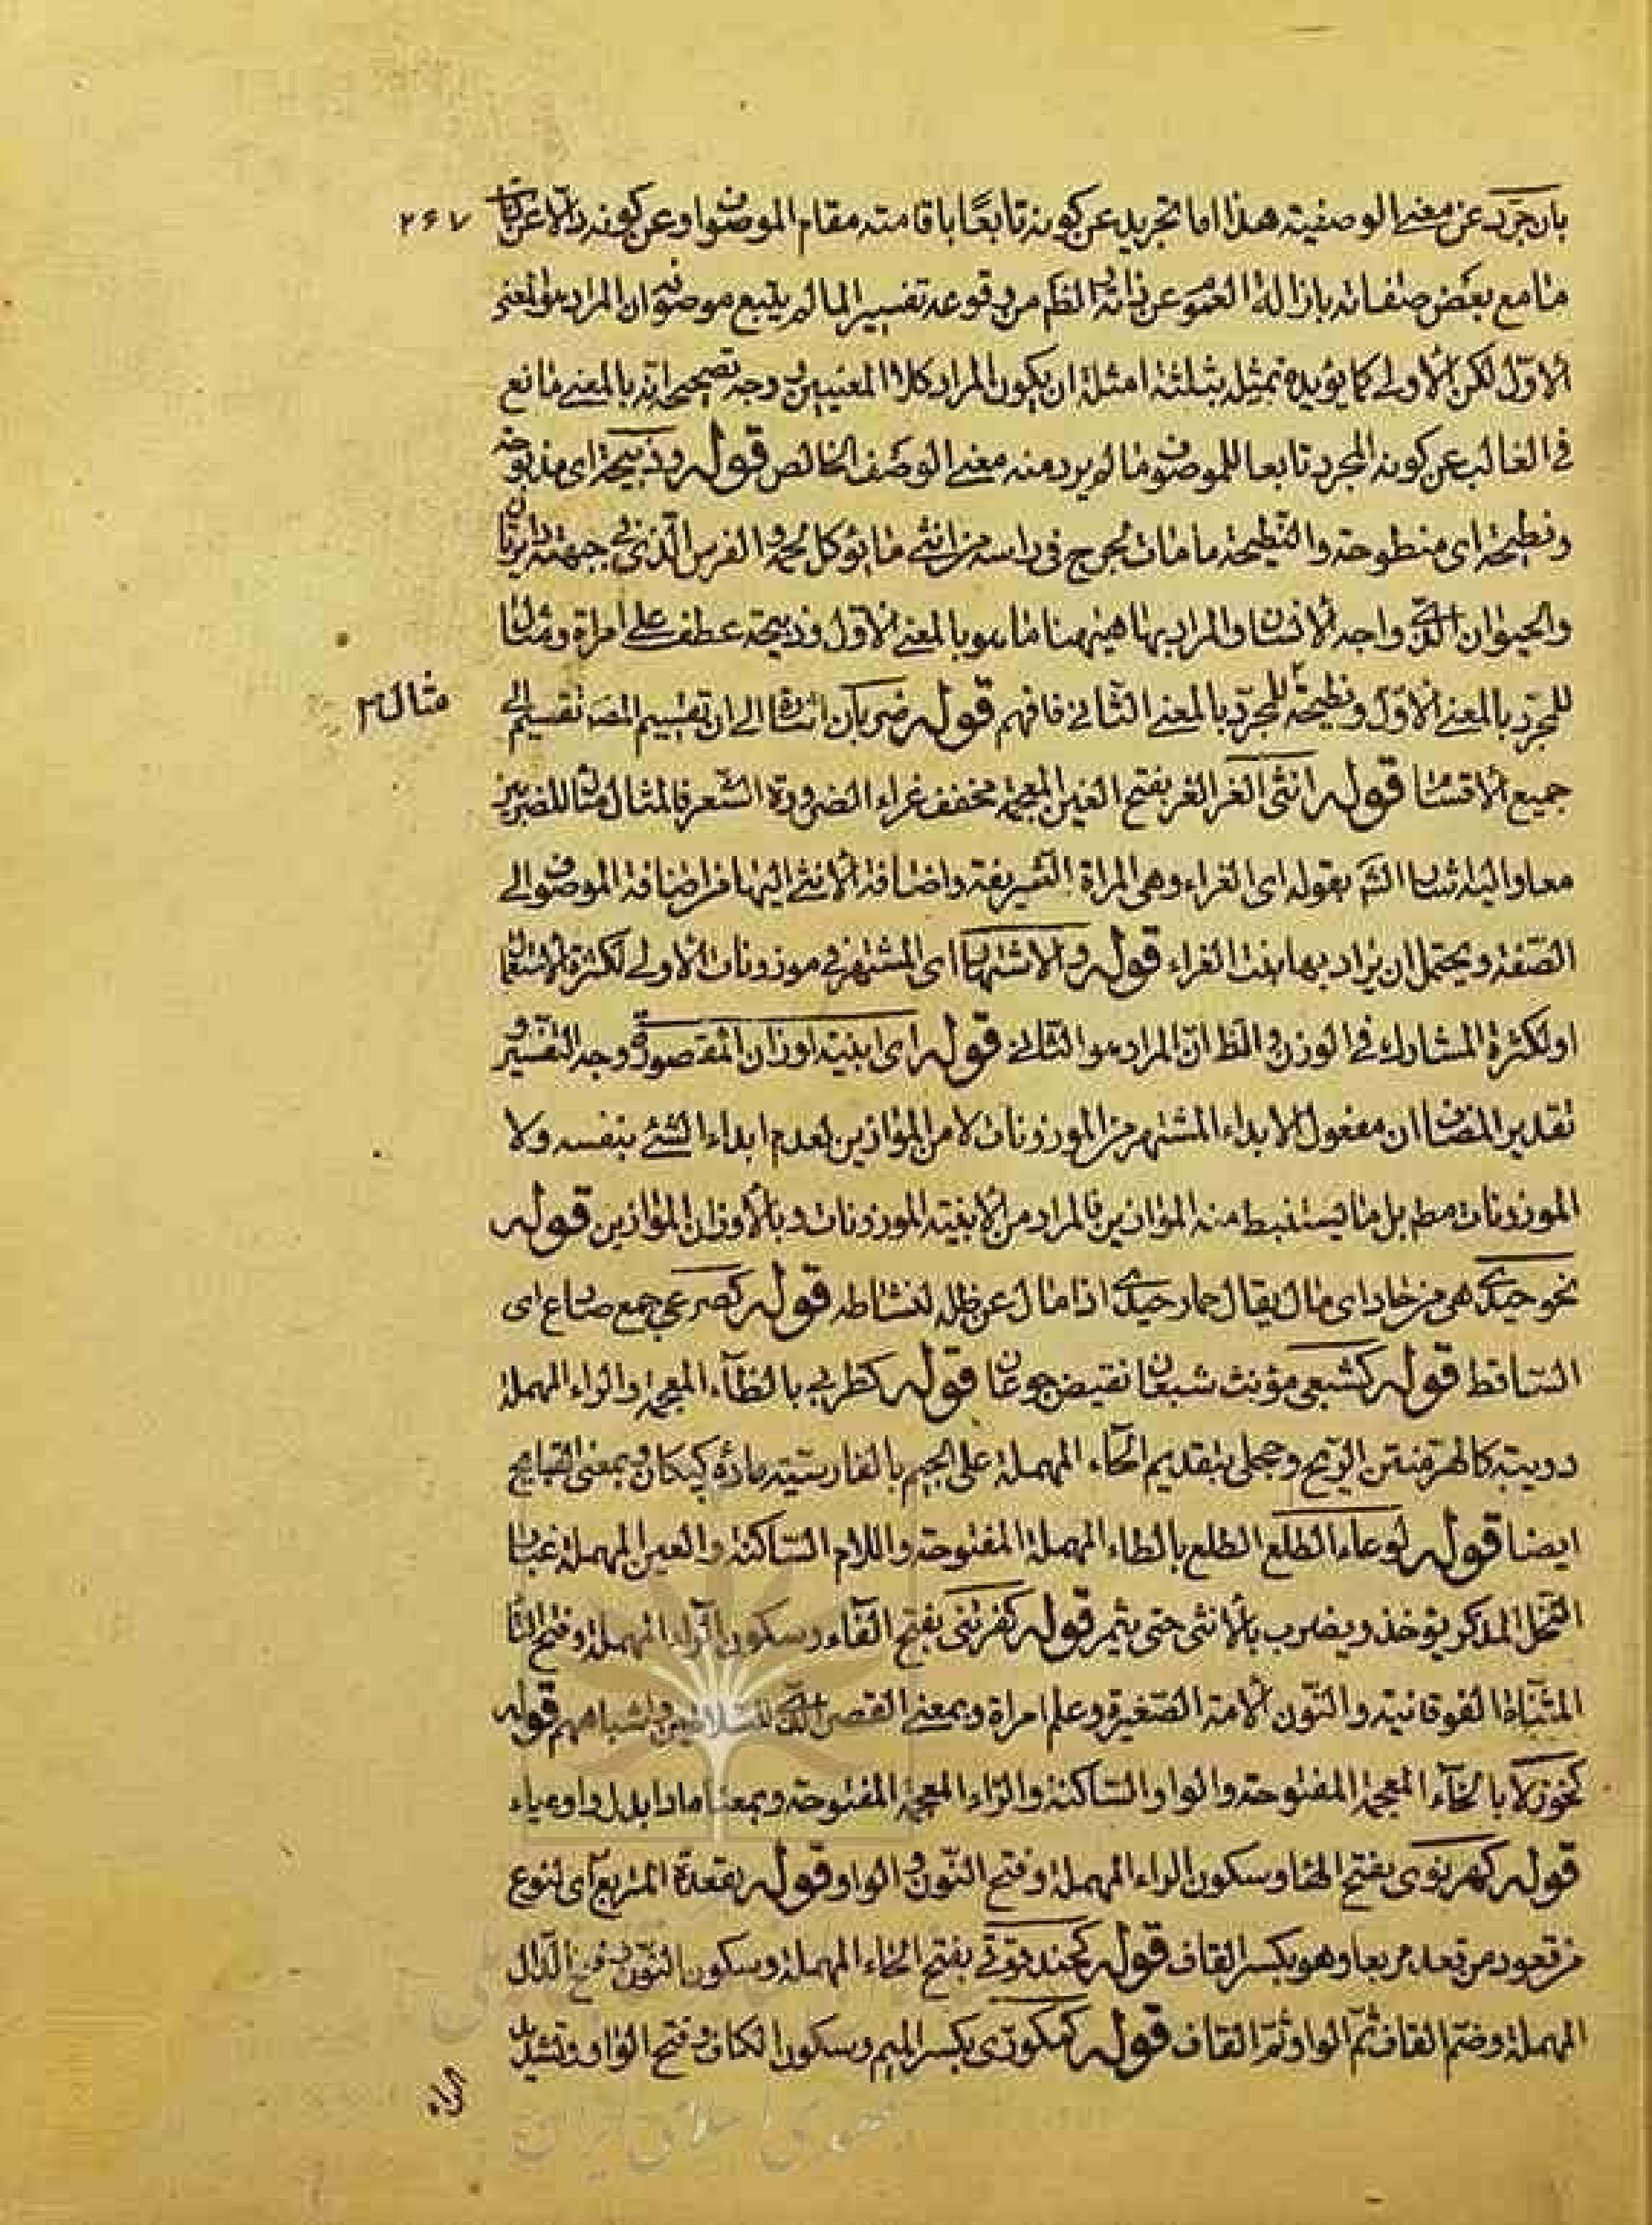 بان جرد عن معنى الوصفية هذا اما تجريد عن كونه تابعًا باقامته مقام الموصوف او عن كونه دالا عن
۲۶۷
ما مع بعض صفاته بازالة العموم عن ذاته الظم من وقوعه تفسير المالم يتبع موصوفه ان المراد هو المعنى
الاوّل لكن الاولى كما يؤيده تمثيل بثلثة امثلة ان يكون المراد كلا المعنيين وجه تصحيحه انه بالمعنى مانع
في الغالب عن كونه المجرد تابعا للموصوف ما لم يرد منه معنى الوصف الخالص قوله وذبيحة اى مذبوحة
ونطيحة اى منطوحة والنّطيحة ما مات بجرح في راسه من انثى ما يؤكل لحمه والفرس الّذي في جبهته
والحيوان الذى واجه الانسان والمراد بها هيهنا ما هو بالمعنى الاول وذبيحة عطف على امراة ومثال
للمجرّد بالمعنى الاوّل ونطيحة للمجرّد بالمعنى الثّانى فافهم قوله ضربان اشارة الى ان تقسيم المصـ تقسيم الى
مثال
جميع الاقسام قوله انثى الغر الغر بفتح الغين المعجمة مخفف غراء لضرورة الشّعر فالمثال مثال للضربين
معا واليه اشار الشـ بقوله اى الغراء وهى المراة الشّريفة واضافة الانثى اليها من اضافة الموصوف الى
الصّفة ويحتمل ان يراد بها بنت الغراء قوله والاشتهار اى المشتهر في موزونات الاولى لكثرة الاستعمال
او لكثرة المشارك في الوزن والظ انّ المراد هو الثّانى قوله اى ابنية اوزان المقصورة وجه التّفسير و
تقدير المضاف ان مفعول الابداء المشتهر من الموزونات لا من الموازين لعدم ابداء الشئ بنفسه ولا
الموزونات مطم بل ما يستنبط منه الموازين فالمراد من الابنية الموزونات وبالاوزان الموازين قوله
نحو حيدى هى من حاد اى مال يقال حمار حيدى اذا مال عن ظله لنشاطه قوله كصرعى جمع صباع اى
السّاقط قوله كشبعى مؤنث شبعان نقيض جوعان قوله كظربى بالظّآء المعجمة والراء المهملة
دويبة كالهرّة منتن الرّيح وحجلى بتقديم الحاء المهملة على الجيم بالفارسيّة ماده كبكان وبمعنى القبايح
ايضا قوله لوعاء الطلع الطلع بالطاء المهملة المفتوحة واللام السّاكنة والعين المهملة غبار
النّخل المذكر يؤخذ ويضرب بالانثى حتى يثمر قوله كفرتنى بفتح الفآء وسكون الرّاء المهملة وفتح التّا
المثنّاة الفوقانية والنّون الامة الصّغيرة وعلم امراة وبمعنى القصر الذى للسلاطين واشباههم قوله
كخوزلا بالخآء المعجمة المفتوحة والواو السّاكنة والزاء المعجمة المفتوحة وبمعناها ما ابدل واوه ياء
قوله كهرنوى بفتح الهاء وسكون الراء المهملة وفتح النّون والواو قوله بقعدة المتربع اى لنوع
من قعود من قعد مربعا وهو بكسر القاف قوله كحندقوقى بفتح الحاء المهملة وسكون النّون وفتح الدّال
المهملة وضمّ القاف ثمّ الواو ثمّ القاف قوله كمكورّى بكسر الميم وسكون الكاف وفتح الواو وتشديد
الراء